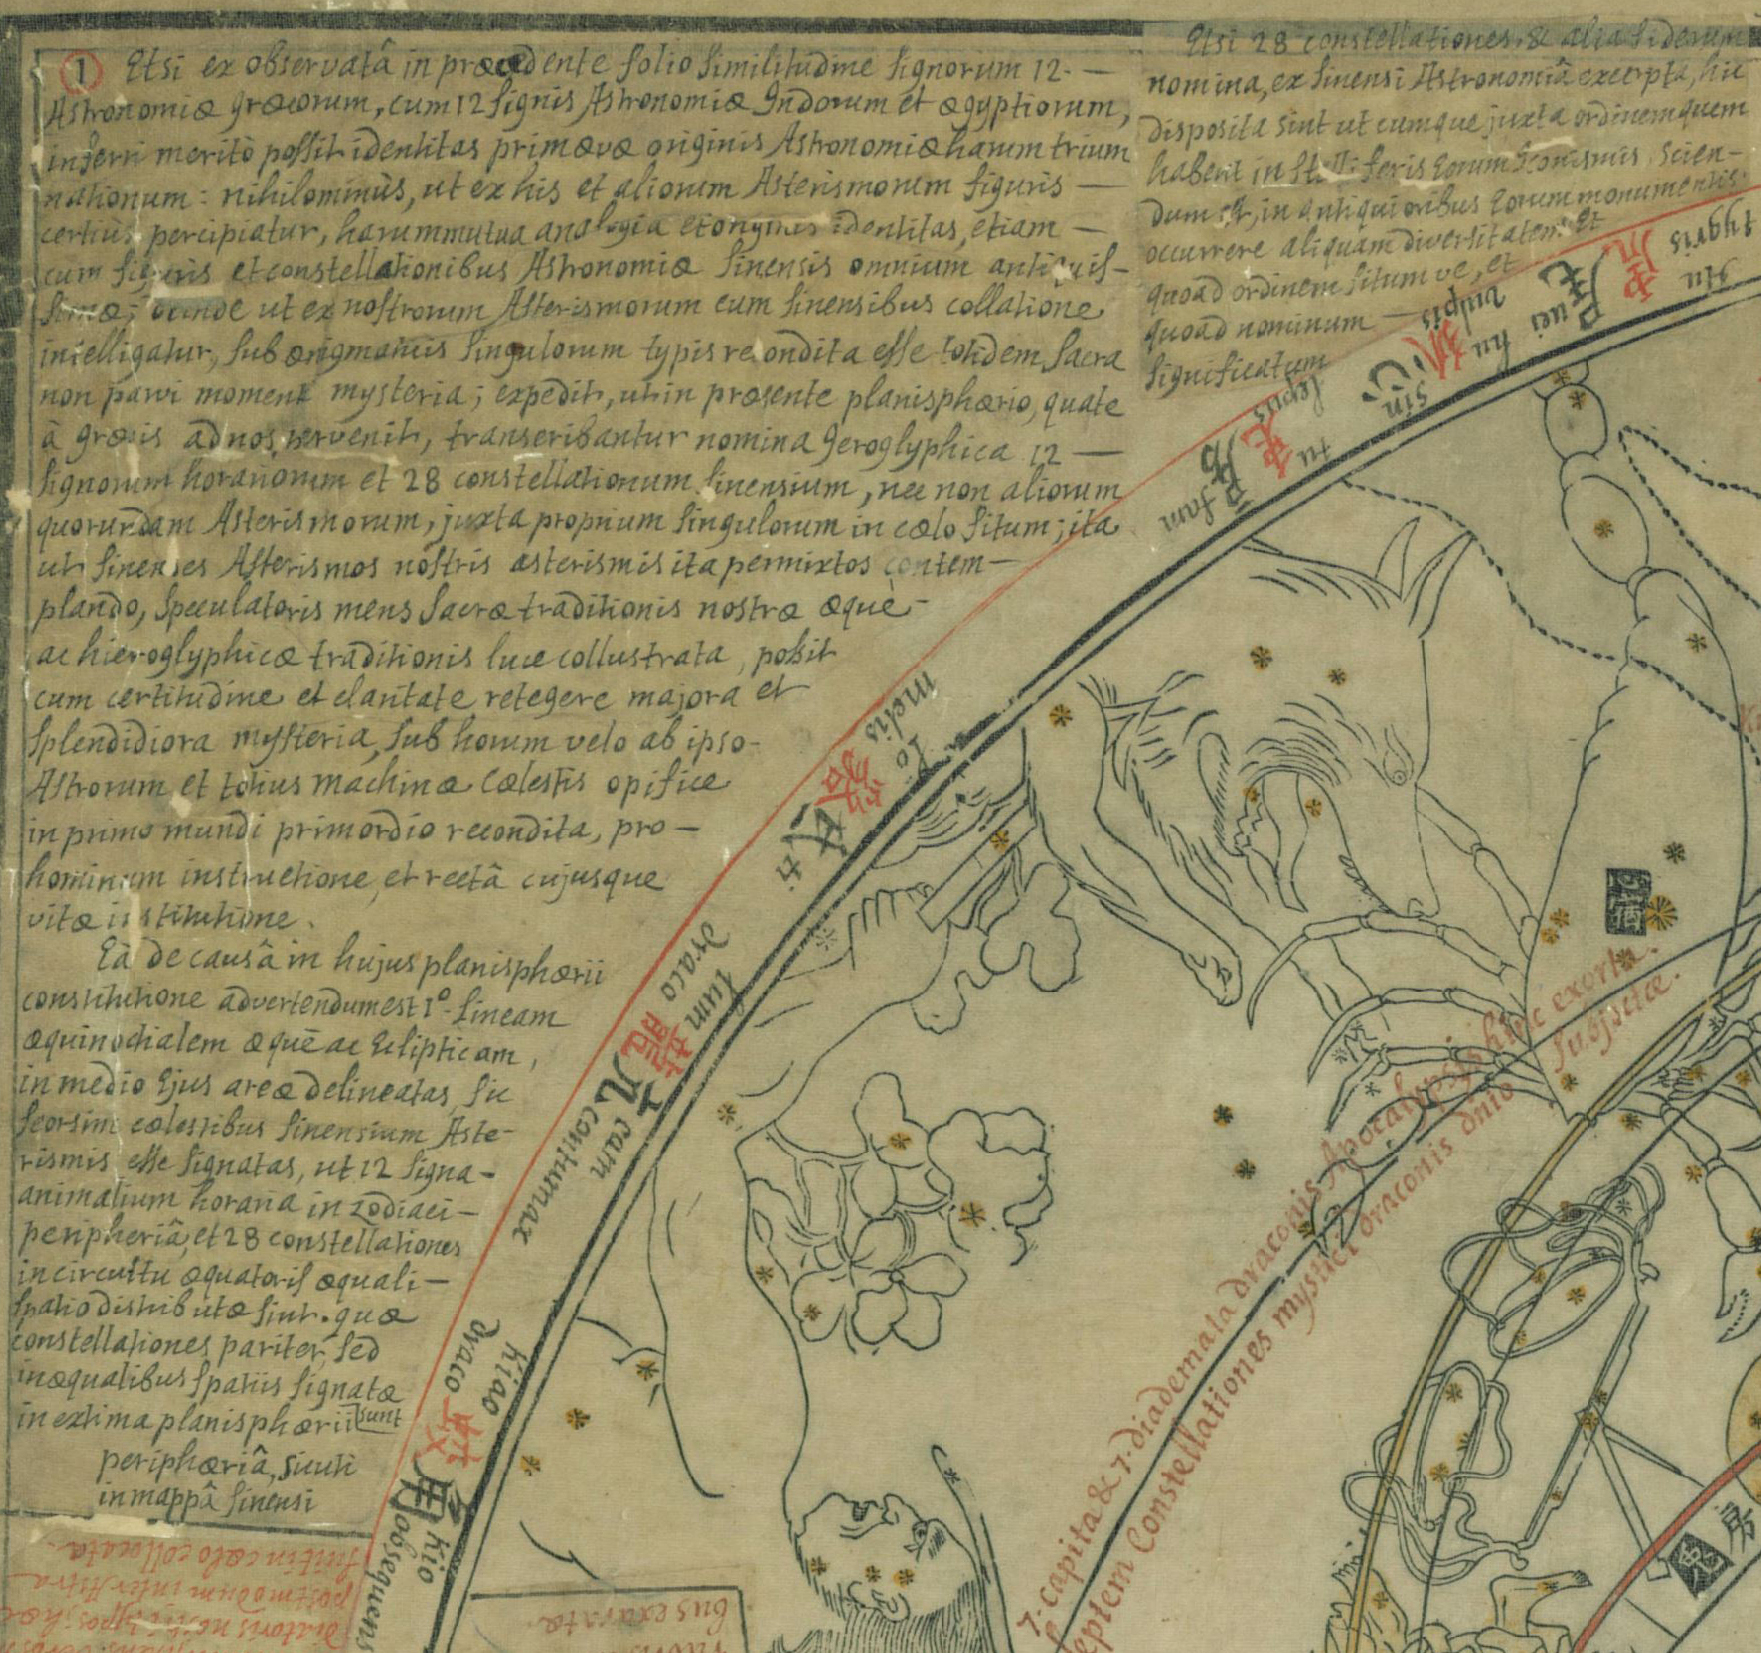 1 Etsi ex observatâ in præcedente folio similitudine signorum 12 —
Astronomiæ græcorum, cum 12 signis Astronomiæ Indorum et ægyptiorum,
inferri meritò possit identitas primævæ originis Astronomiæ harum trium
nationum: nihilominùs, ut ex his et aliorum Asterismorum figuris —
certiùs percipiatur, harum mutua analogia et originis identitas, etiam —
cum figuris et constellationibus Astronomiæ sinensis omnium antiquis-
simæ; ut ex nostrorum Asterismorum cum sinensibus collatione
intelligatur, sub ænigmaticis singulorum typis recondita esse totidem sacra
non parvi momenti mysteria; expedit, ut in præsente planisphærio, quale
à græcis ad nos pervenit, transcribantur nomina geroglyphica 12 —
signorum horariorum et 28 constellationum sinensium, nec non aliorum
quorumdam Asterismorum, juxta proprium singulorum in cælo situm; ita
ut sinenses Asterismos nostris asterismis ita permixtos contem-
plando, speculatoris mens sacræ traditionis nostræ æquè-
ac hieroglyphicæ traditionis luce collustrata, possit
cum certitudine et claritate retegere majora et
splendidiora mysteria, sub horum velo ab ipso-
Astrorum et totius machinæ cælestis opifice
in primo mundi primordio recondita, pro —
hominum instructione, et rectâ cujusque
vitæ institutione.
Eâ de causâ in hujus planisphærii
constitutione advertendum est 1º. lineam
æquinoctialem æquè ac Eclipticam,
in medio ejus areæ delineatas, sic
seorsim cælestibus sinensium Aste-
rismis esse signatas, ut 12 signa-
animalium horaria in zodiaci —
peripheriâ, et 28 constellationes
in circuitu æquatoris æquali —
spatio distributæ sint. quæ
constellationes pariter, sed
inæqualibus spatiis signatæ
in extima planisphærii sunt
periphæriâ, sicuti
in mappâ sinensi
Etsi 28 constellationes & alia siderum
nomina, ex sinensi Astronomiâ excerpta, hic
disposita sint utcumque juxta ordinem quem
habent in stelliferis eorum iconismis, scien-
dum est, in antiquioribus eorum monumentis
occurrere aliquam diversitatem et
quoad ordinem situmve, et
quoad nominum —
significatum
tygris
hu
虎
尾 uei
hu
vulpis
狐
心 sin
lepus
兎
tu
房 fam
melis
ho
貉
氐 ti
draco
lum
龍
亢 cam
contumax
draco
kiao
蛟
角 kio
obsequens
7. capita & 7. diademata draconis Apocalypsis hinc exorta.
septem Constellationes mystici draconis dnio subjectæ.
fuit in cælo collocata.
postmodum inter Astra
房
兎